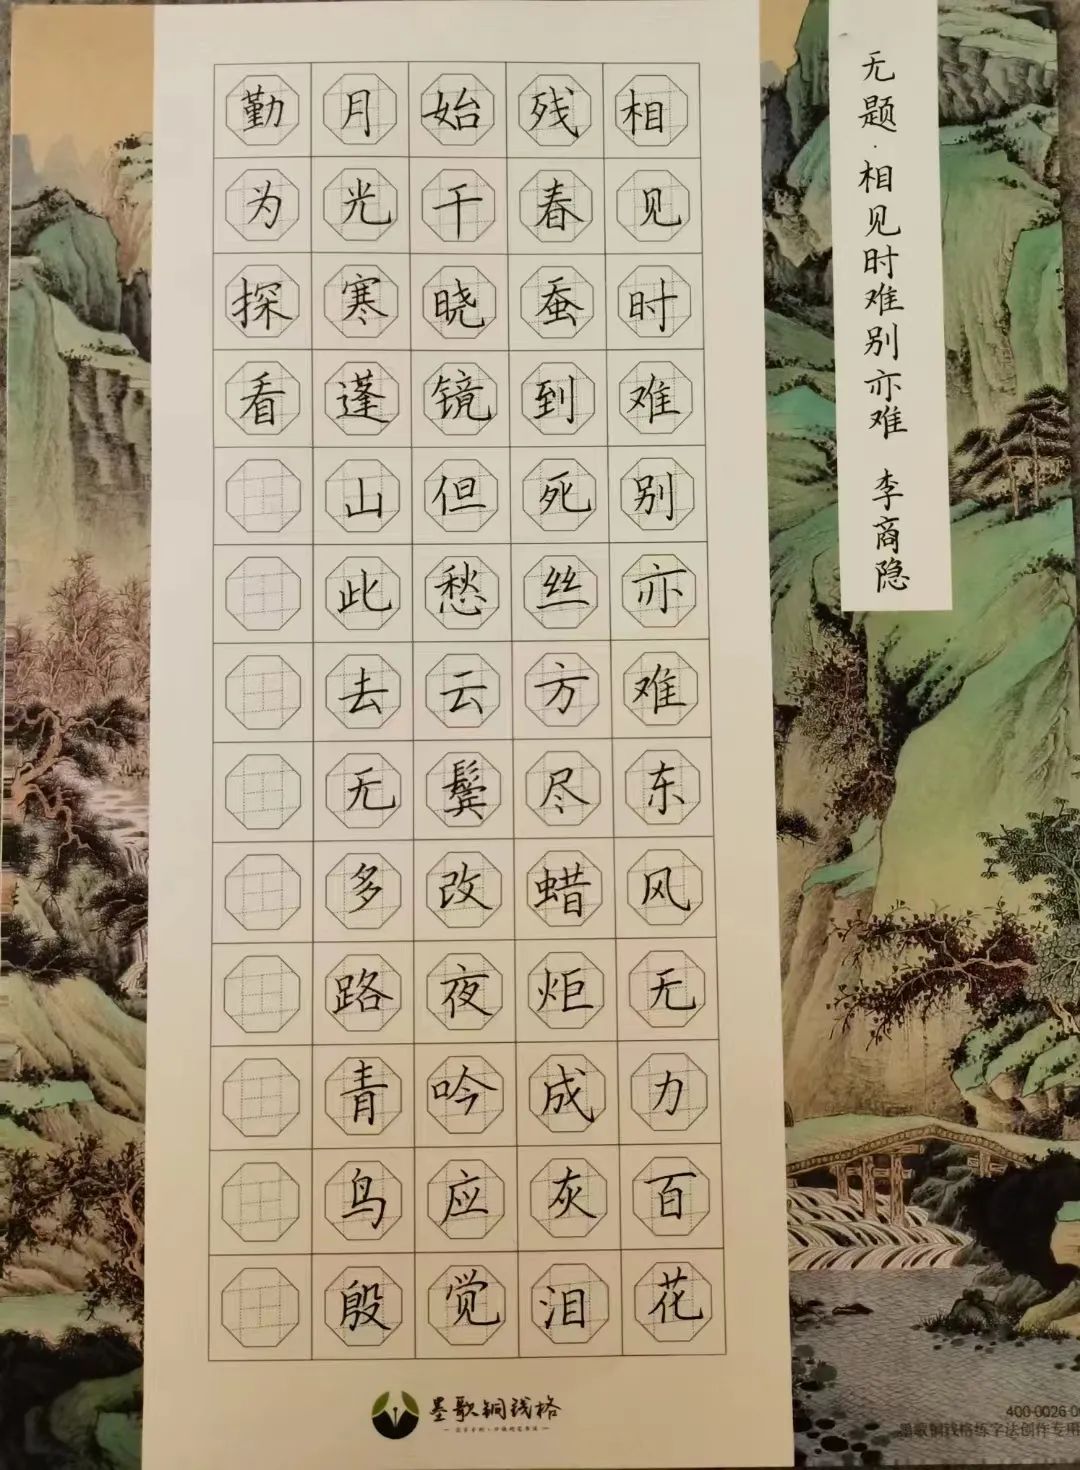 无题·相见时难别亦难 李商隐
相见时难别亦难东风无力百花
残春蚕到死丝方尽蜡炬成灰泪
始干晓镜但愁云鬓改夜吟应觉
月光寒蓬山此去无多路青鸟殷
勤为探看
墨歌铜钱格
400-0026-0
墨歌铜钱格练字法创作专用